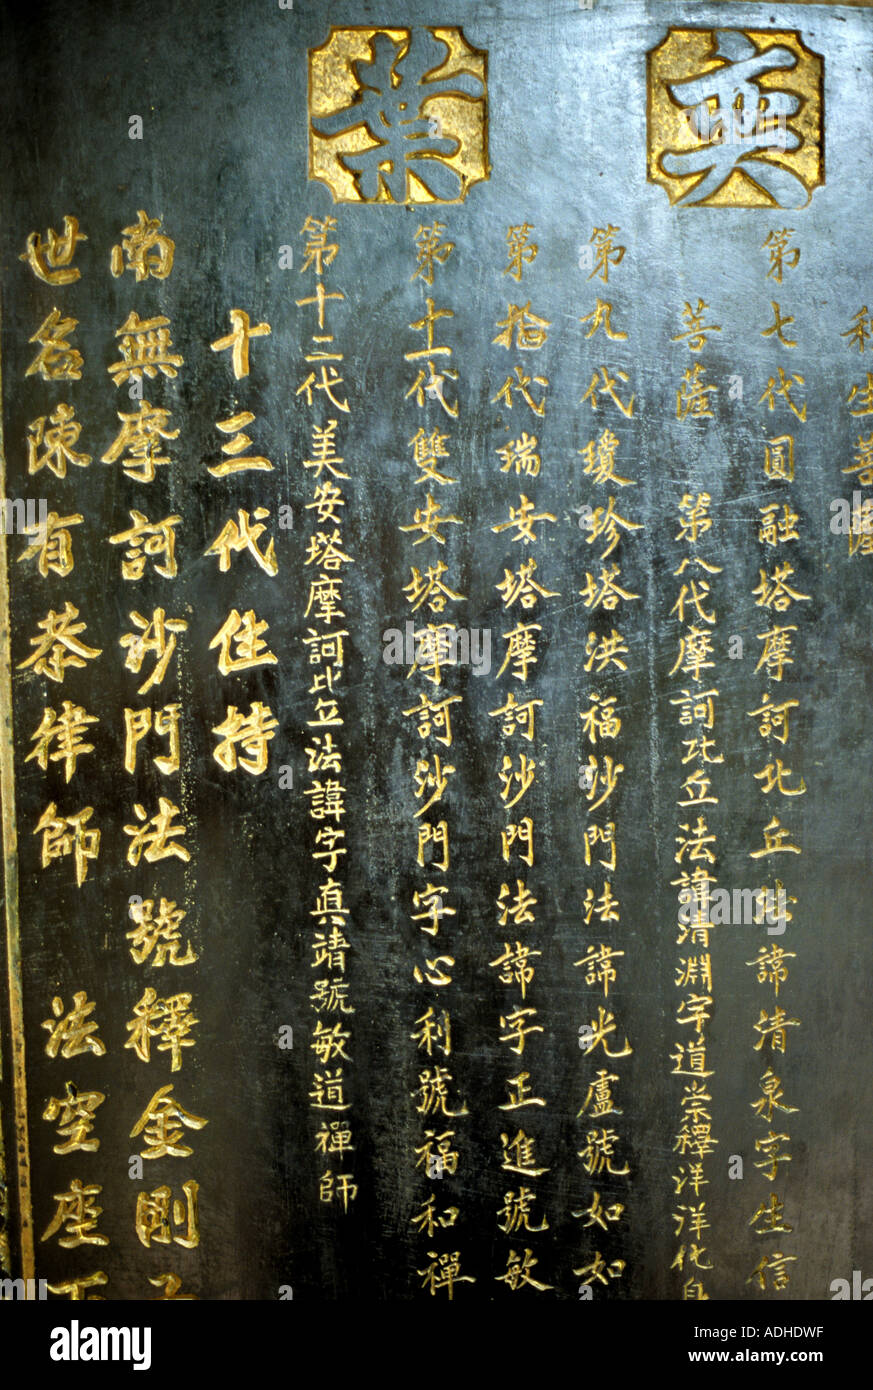 奕葉
利生菩薩
第七代圓融塔摩訶比丘法諱清泉字生信
菩薩 第八代摩訶比丘法諱清淵字道崇釋洋洋化身
第九代瓊珍塔洪福沙門法諱光盧號如如
第拾代瑞安塔摩訶沙門法諱字正進號敏
第十一代雙安塔摩訶沙門字心利號福和禪
第十二代美安塔摩訶比丘法諱字真靖號敏道禪師
十三代住持
南無摩訶沙門法號釋金剛子
世名陳有恭律師 法空座下
alamy
Image ID: ADHDWF
www.alamy.com